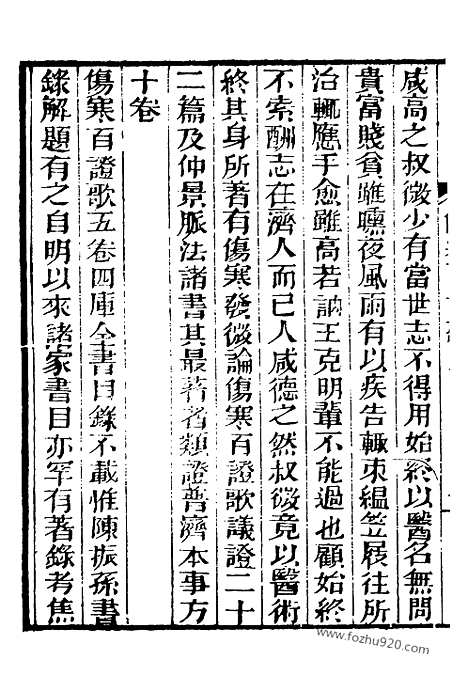 咸高之叔微少有當世志不得用始終以醫名無問
貴富賤貧雖曛夜風雨有以疾告輒束縕笠屐往所
治輒應手愈雖高若訥王克明輩不能過也顧始終
不索酬志在濟人而已人咸德之然叔微竟以醫術
終其身所著有傷寒發微論傷寒百證歌議證二十
二篇及仲景脈法諸書其最著者類證普濟本事方
十卷
傷寒百證歌五卷四庫全書目錄不載惟陳振孫書
錄解題有之自明以來諸家書目亦罕有著錄考焦
www.fozhu920.com